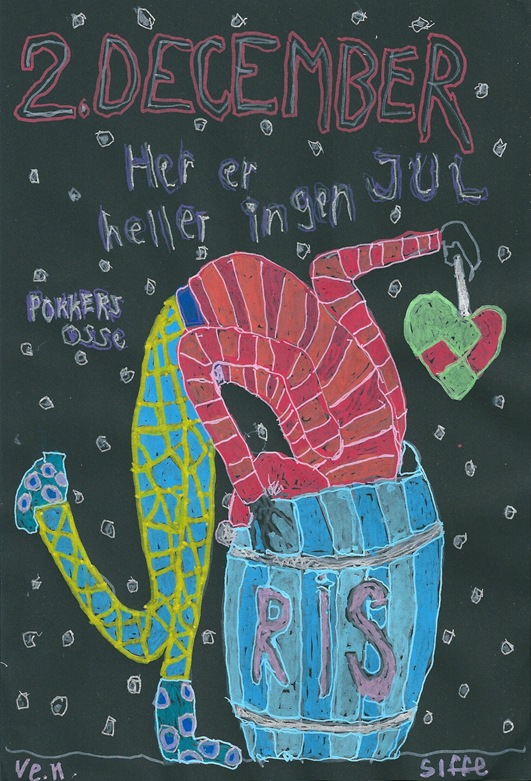 2. DECEMBER
Her er ingen JUL
heller
POKKERS
OSSE
RIS
ve.n. siffe